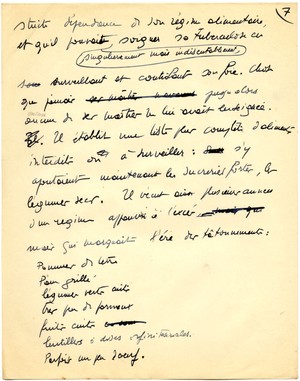 7
stricte dépendance de son régime alimentaire,
et qu'il pouvait soigner sa tuberculose en
singulièrement mais indiscutablement
surveillant et contrôlant son foie. Chose
que jamais jusqu'alors
aucun de ses maîtres ne lui avait enseigné.
Il établit une liste plus complète d'aliments
interdits ou à surveiller : s'y
ajoutaient maintenant les sucreries fortes, les
légumes secs. Il vécut ainsi plusieurs années
d'un régime
mais qui marquait l'ère des tâtonnements :
Pommes de terre
Pain grillé
légumes verts cuits
très peu de
fruits cuits
lentilles à doses infinitésimales.
Parfois un peu d'oeuf.